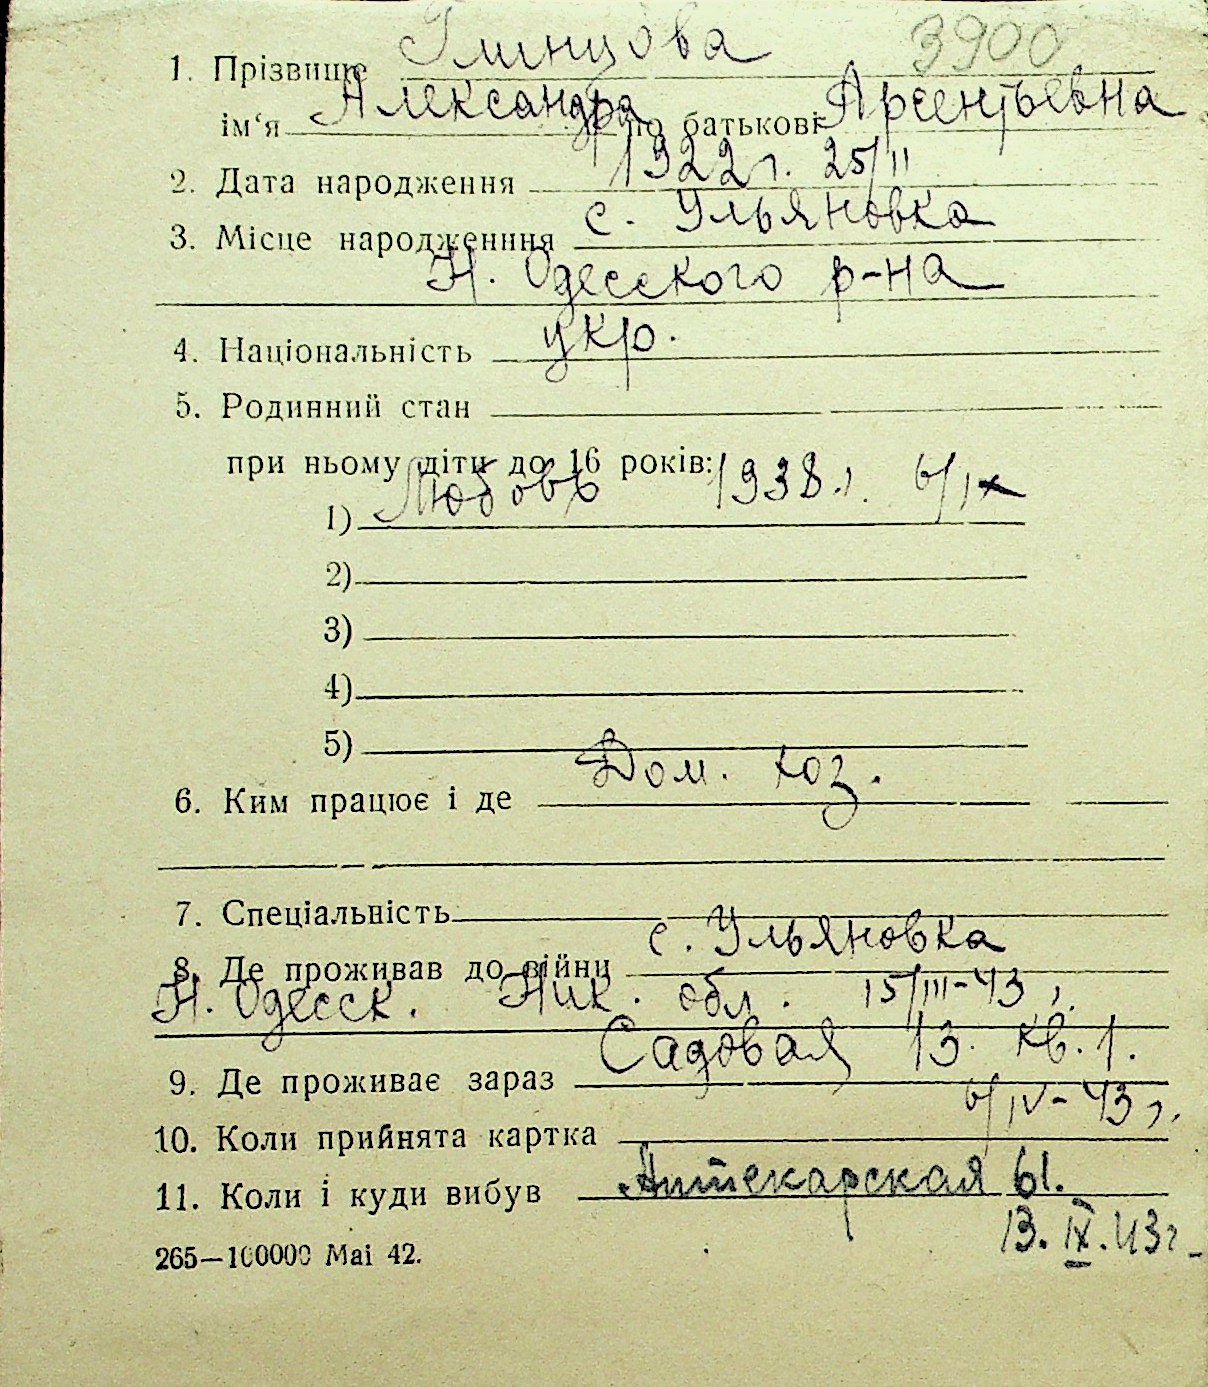 3900
1. Прізвище
ім‘я Александра по батькові Арсентьевна
2. Дата народження 1922 г. 25/II
3. Місце народженння с. Ульяновка
Н. Одесского р-на
4. Національність укр.
5. Родинний стан
при ньому діти до 16 років:
1) Любовь 1938 г. 6/IX
2)
3)
4)
5)
6. Ким працює і де Дом. хоз.
7. Спеціальність
8. Де проживав до війни с. Ульяновка
Н. Одесск. Ник. обл. 15/III-43 г.
9. Де проживає зараз Садовая 13. кв. 1.
10. Коли прийнята картка 6/IV-43 г.
11. Коли і куди вибув Аптекарская 61.
13. IX. 43 г.
265—100000 Mai 42.